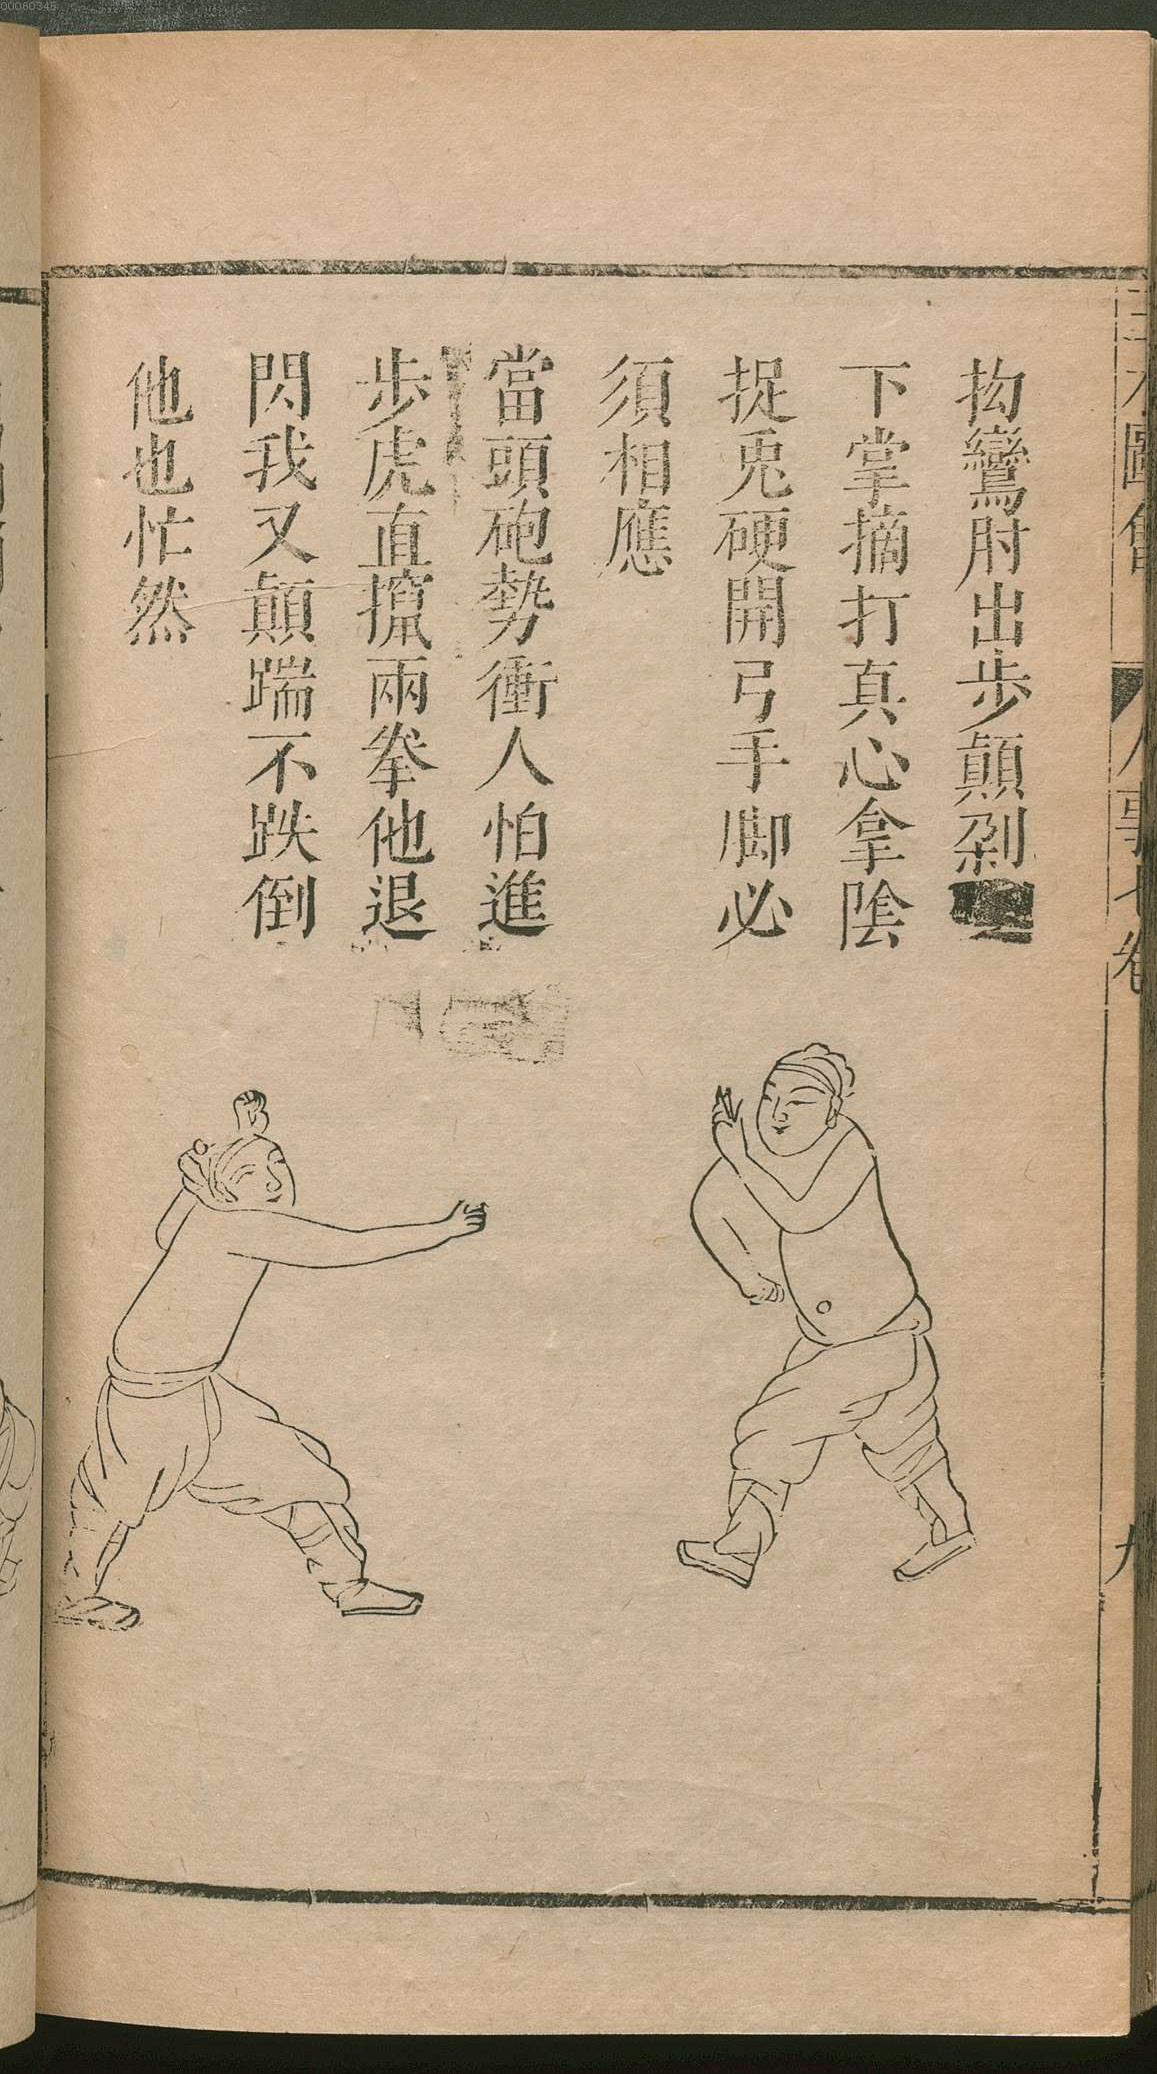 拗鸞肘出步顛剁
下掌摘打真心拿陰
捉兎硬開弓手脚必
須相應
當頭砲勢衝人怕進
步虎直攛兩拳他退
閃我又顛踹不跌倒
他也忙然
圖會
人事七卷
九
00060345